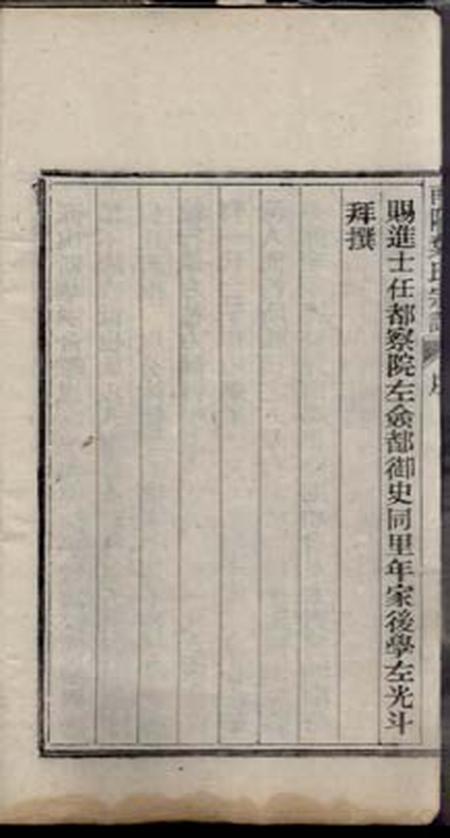 賜進士任都察院左僉都御史同里年家後學左光斗
拜撰